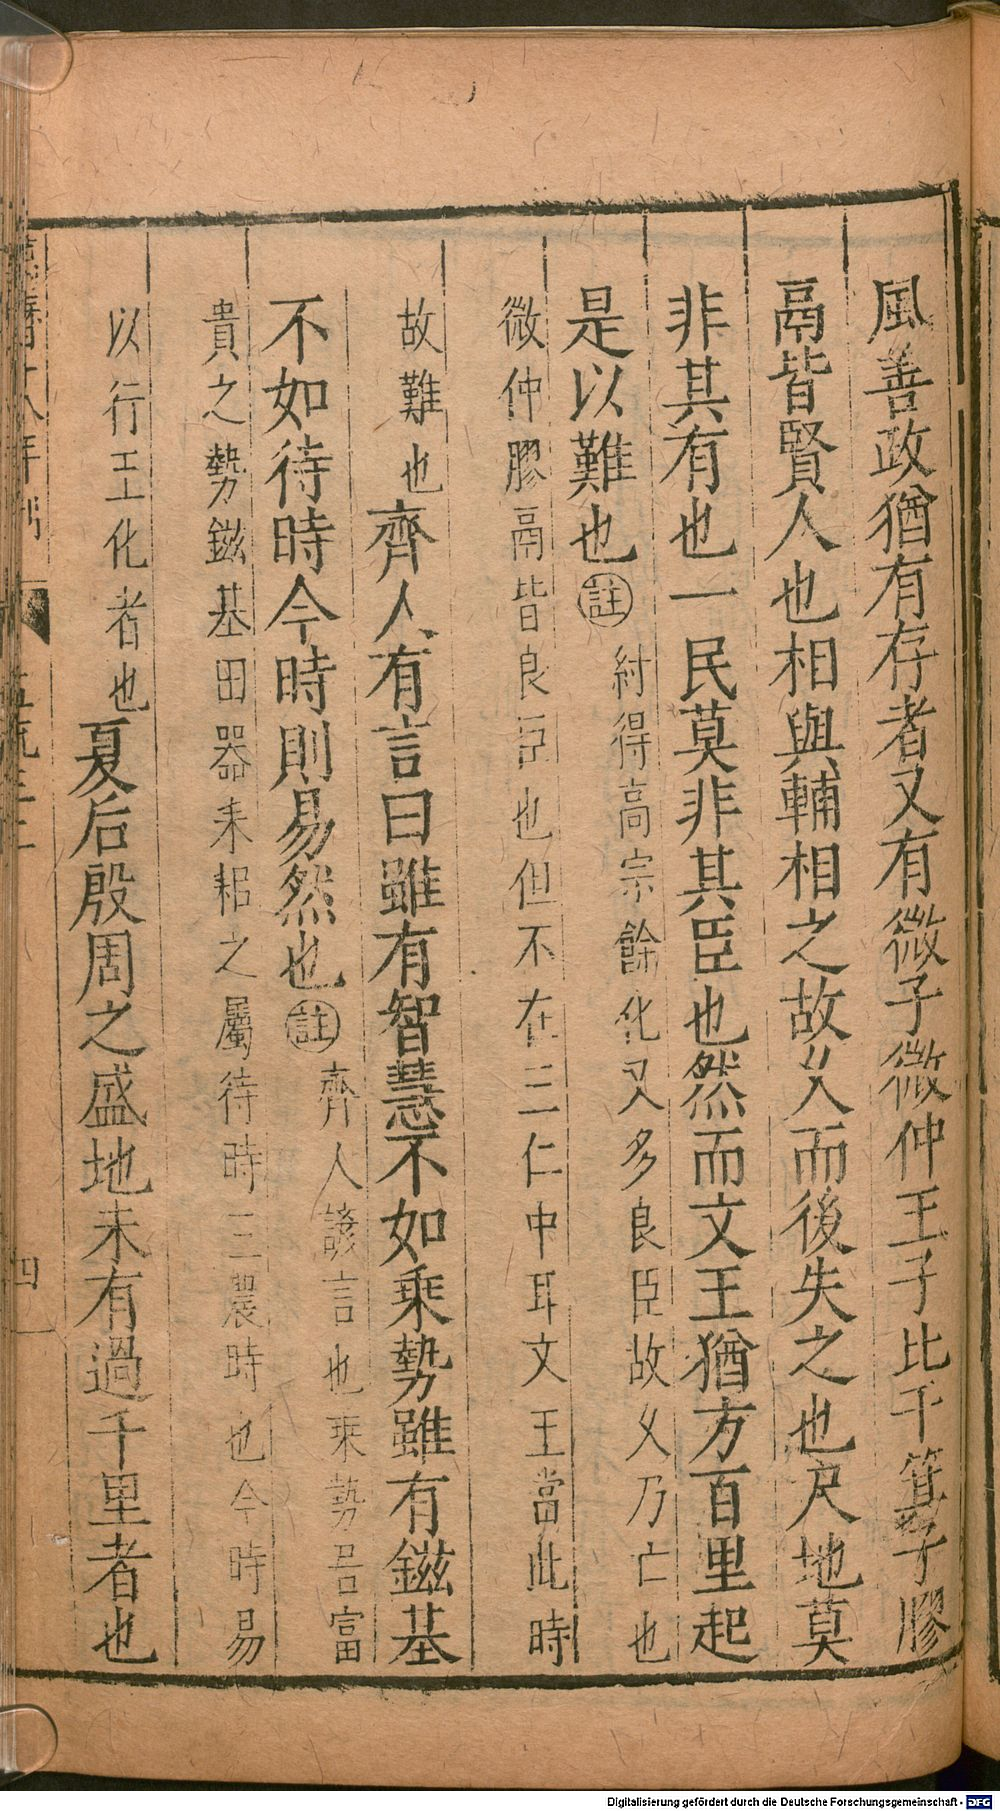 風善政猶有存者又有微子微仲王子比干箕子膠
鬲皆賢人也相與輔相之故久而後失之也尺地莫
非其有也一民莫非其臣也然而文王猶方百里起
是以難也註紂得高宗餘化又多良臣故久乃亡也
微仲膠鬲皆良臣也但不在三仁中耳文王當此時
故難也齊人有言曰雖有智慧不如乘勢雖有鎡基
不如待時今時則易然也註齊人諺言也乗勢居富
貴之勢鎡基田器耒耜之屬待時三農時也今時易
以行王化者也夏后殷周之盛地未有過千里者也
四
Digitalisierung gefördert durch die Deutsche Forschungsgemeinschaft - DFG